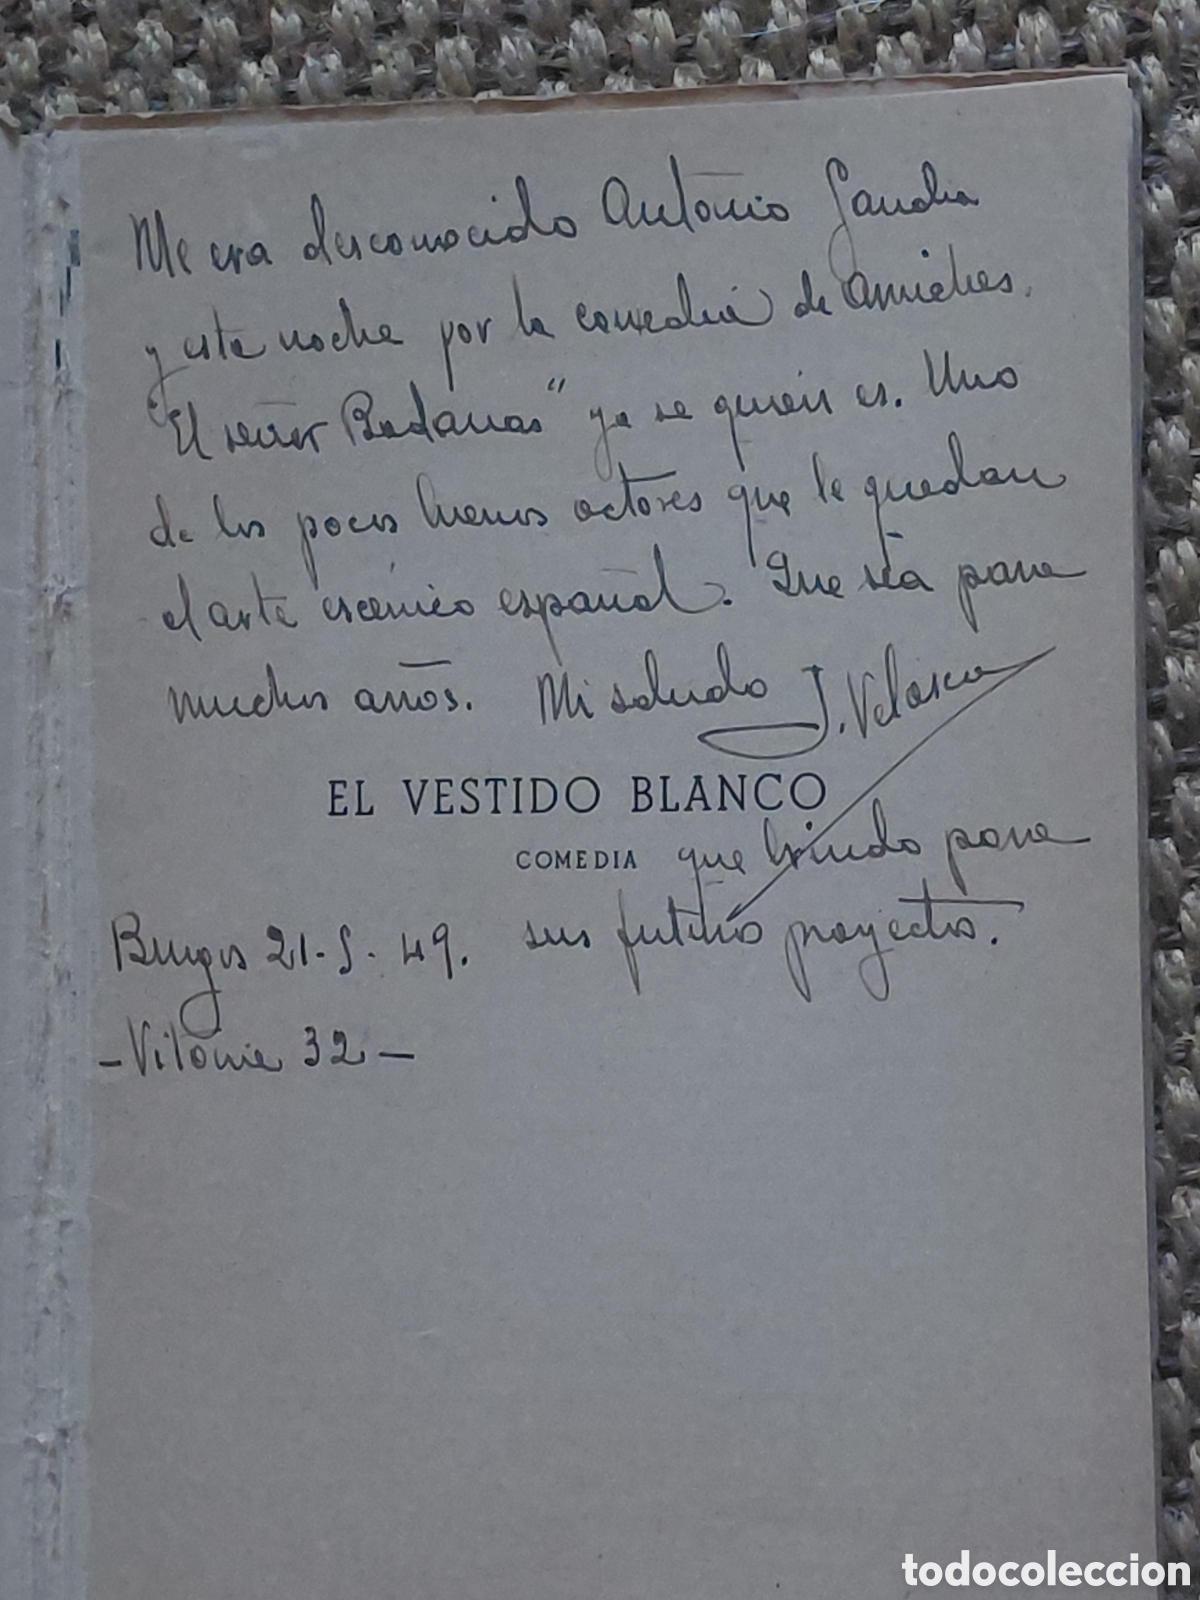 Me era desconocido Antonio Gandia
y esta noche por la comedia de Arniches.
"El señor Badanas" ya se quién es. Uno
de los pocos buenos actores que le quedan
el arte escénico español. Que sea para
muchos años. Mi saludo J. Velasco
EL VESTIDO BLANCO
COMEDIA que brindo para
Burgos 21-5-49. sus futuros proyectos.
-Vitoria 32-
todocoleccion